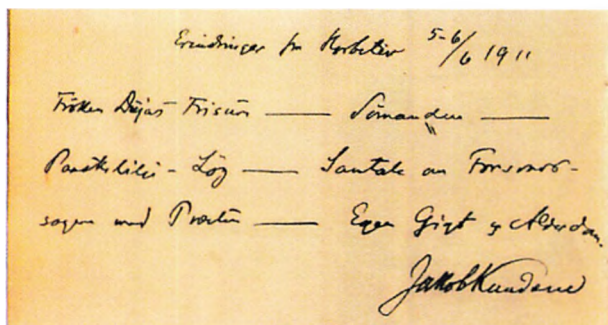 Erindringer fra Korbetiv 5-6/6 1911
Frøken Dijas Frisur — Sömanden —
Paaskelilje-Løg — Samtale om Forsvars-
sagen med Præsten — Egen Gigt og Alderdom.
Jakob Knudsen